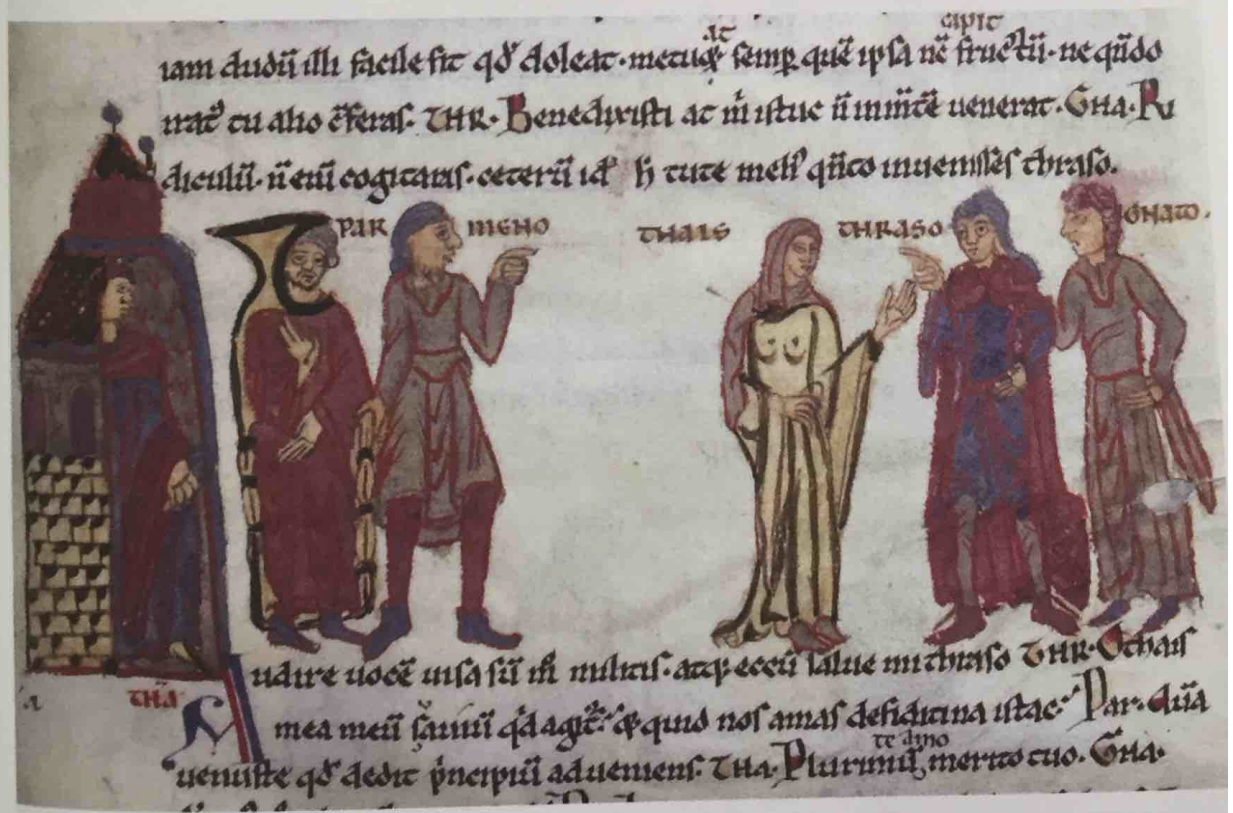 at cipit
iam dudū illi facile fit qđ doleat · metuꝙ semp̱ quē ipsa nē fructū · ne qn̄do
irat᷒ tu alio c̄feras · THR · Benedixisti ac m̄ istuc n̄ inm̄tē uenerat · GHA · Ri
diculū · n̄ enī cogitaras · ceterū id h̄ tute meli᷒ qn̄to inuenisses thraso.
PAR MENO THAIS THRASO GNATO.
THA
Audire uocē uisa sū m̄ militis · atqꝫ eccū salue mi thraso THR · O thais
mea meū sauiū qd agit᷒ · quid nos amas defidicina istac · Par · quā
te amo
uenuste qđ dedit p̄ncipiū adueniens · THA · Plurimū merito tuo · GNA ·